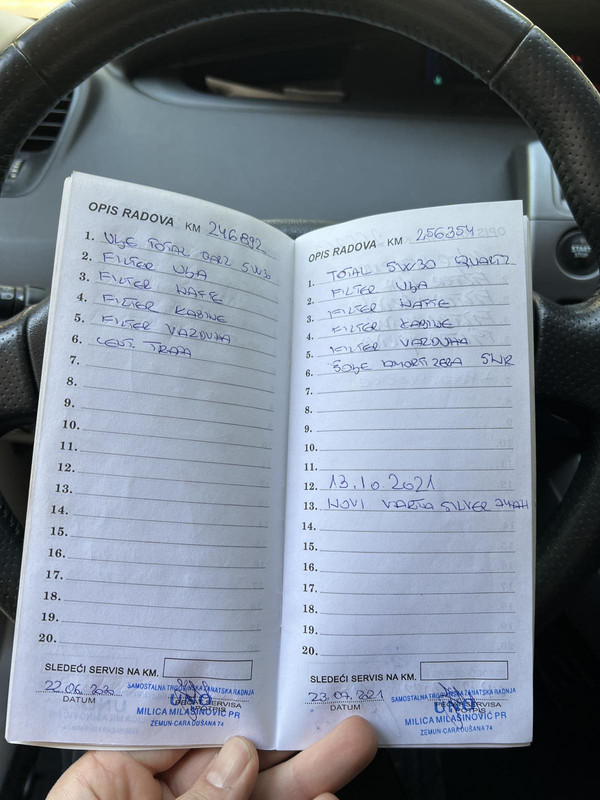 OPIS RADOVA KM 246892
1. ULJE TOTAL 5W30
2. FILTER ULJA
3. FILTER NAFTE
4. FILTER KABINE
5. FILTER VAZDUHA
6.
7.
8.
9.
10.
11.
12.
13.
14.
15.
16.
17.
18.
19.
20.
SLEDEĆI SERVIS NA KM.
22.06.2020
DATUM
SAMOSTALNA TRGOVINSKA ZANATSKA RADNJA
UNO
MILICA MILAŠINOVIĆ PR
ZEMUN-CARA DUŠANA 74
OPIS RADOVA KM 256354
1. TOTAL 5W30 QUARTZ
2. FILTER ULJA
3. FILTER NAFTE
4. FILTER KABINE
5. FILTER VAZDUHA
6. ŠOLJE AMORTIZERA
7.
8.
9.
10.
11.
12. 13.10.2021
13. NOVI VARTA SILVER 74AH
14.
15.
16.
17.
18.
19.
20.
SLEDEĆI SERVIS NA KM.
23.07.2021
DATUM
SAMOSTALNA TRGOVINSKA ZANATSKA RADNJA
UNO
MILICA MILAŠINOVIĆ PR
ZEMUN-CARA DUŠANA 74